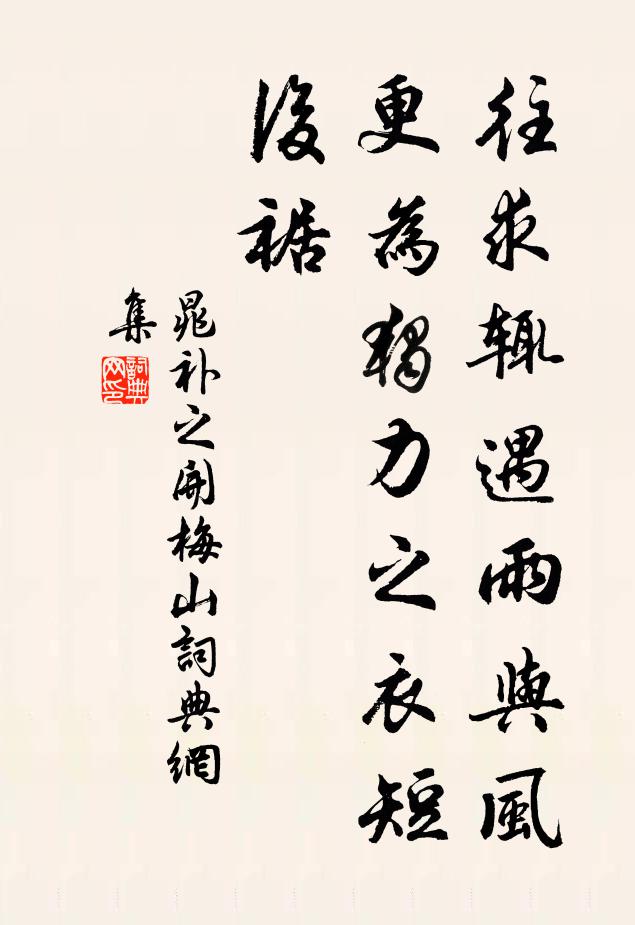 往求輒遇雨與風
更為獨力之衣短
後裾
晁补之開梅山詞典網
集
詞典
网印